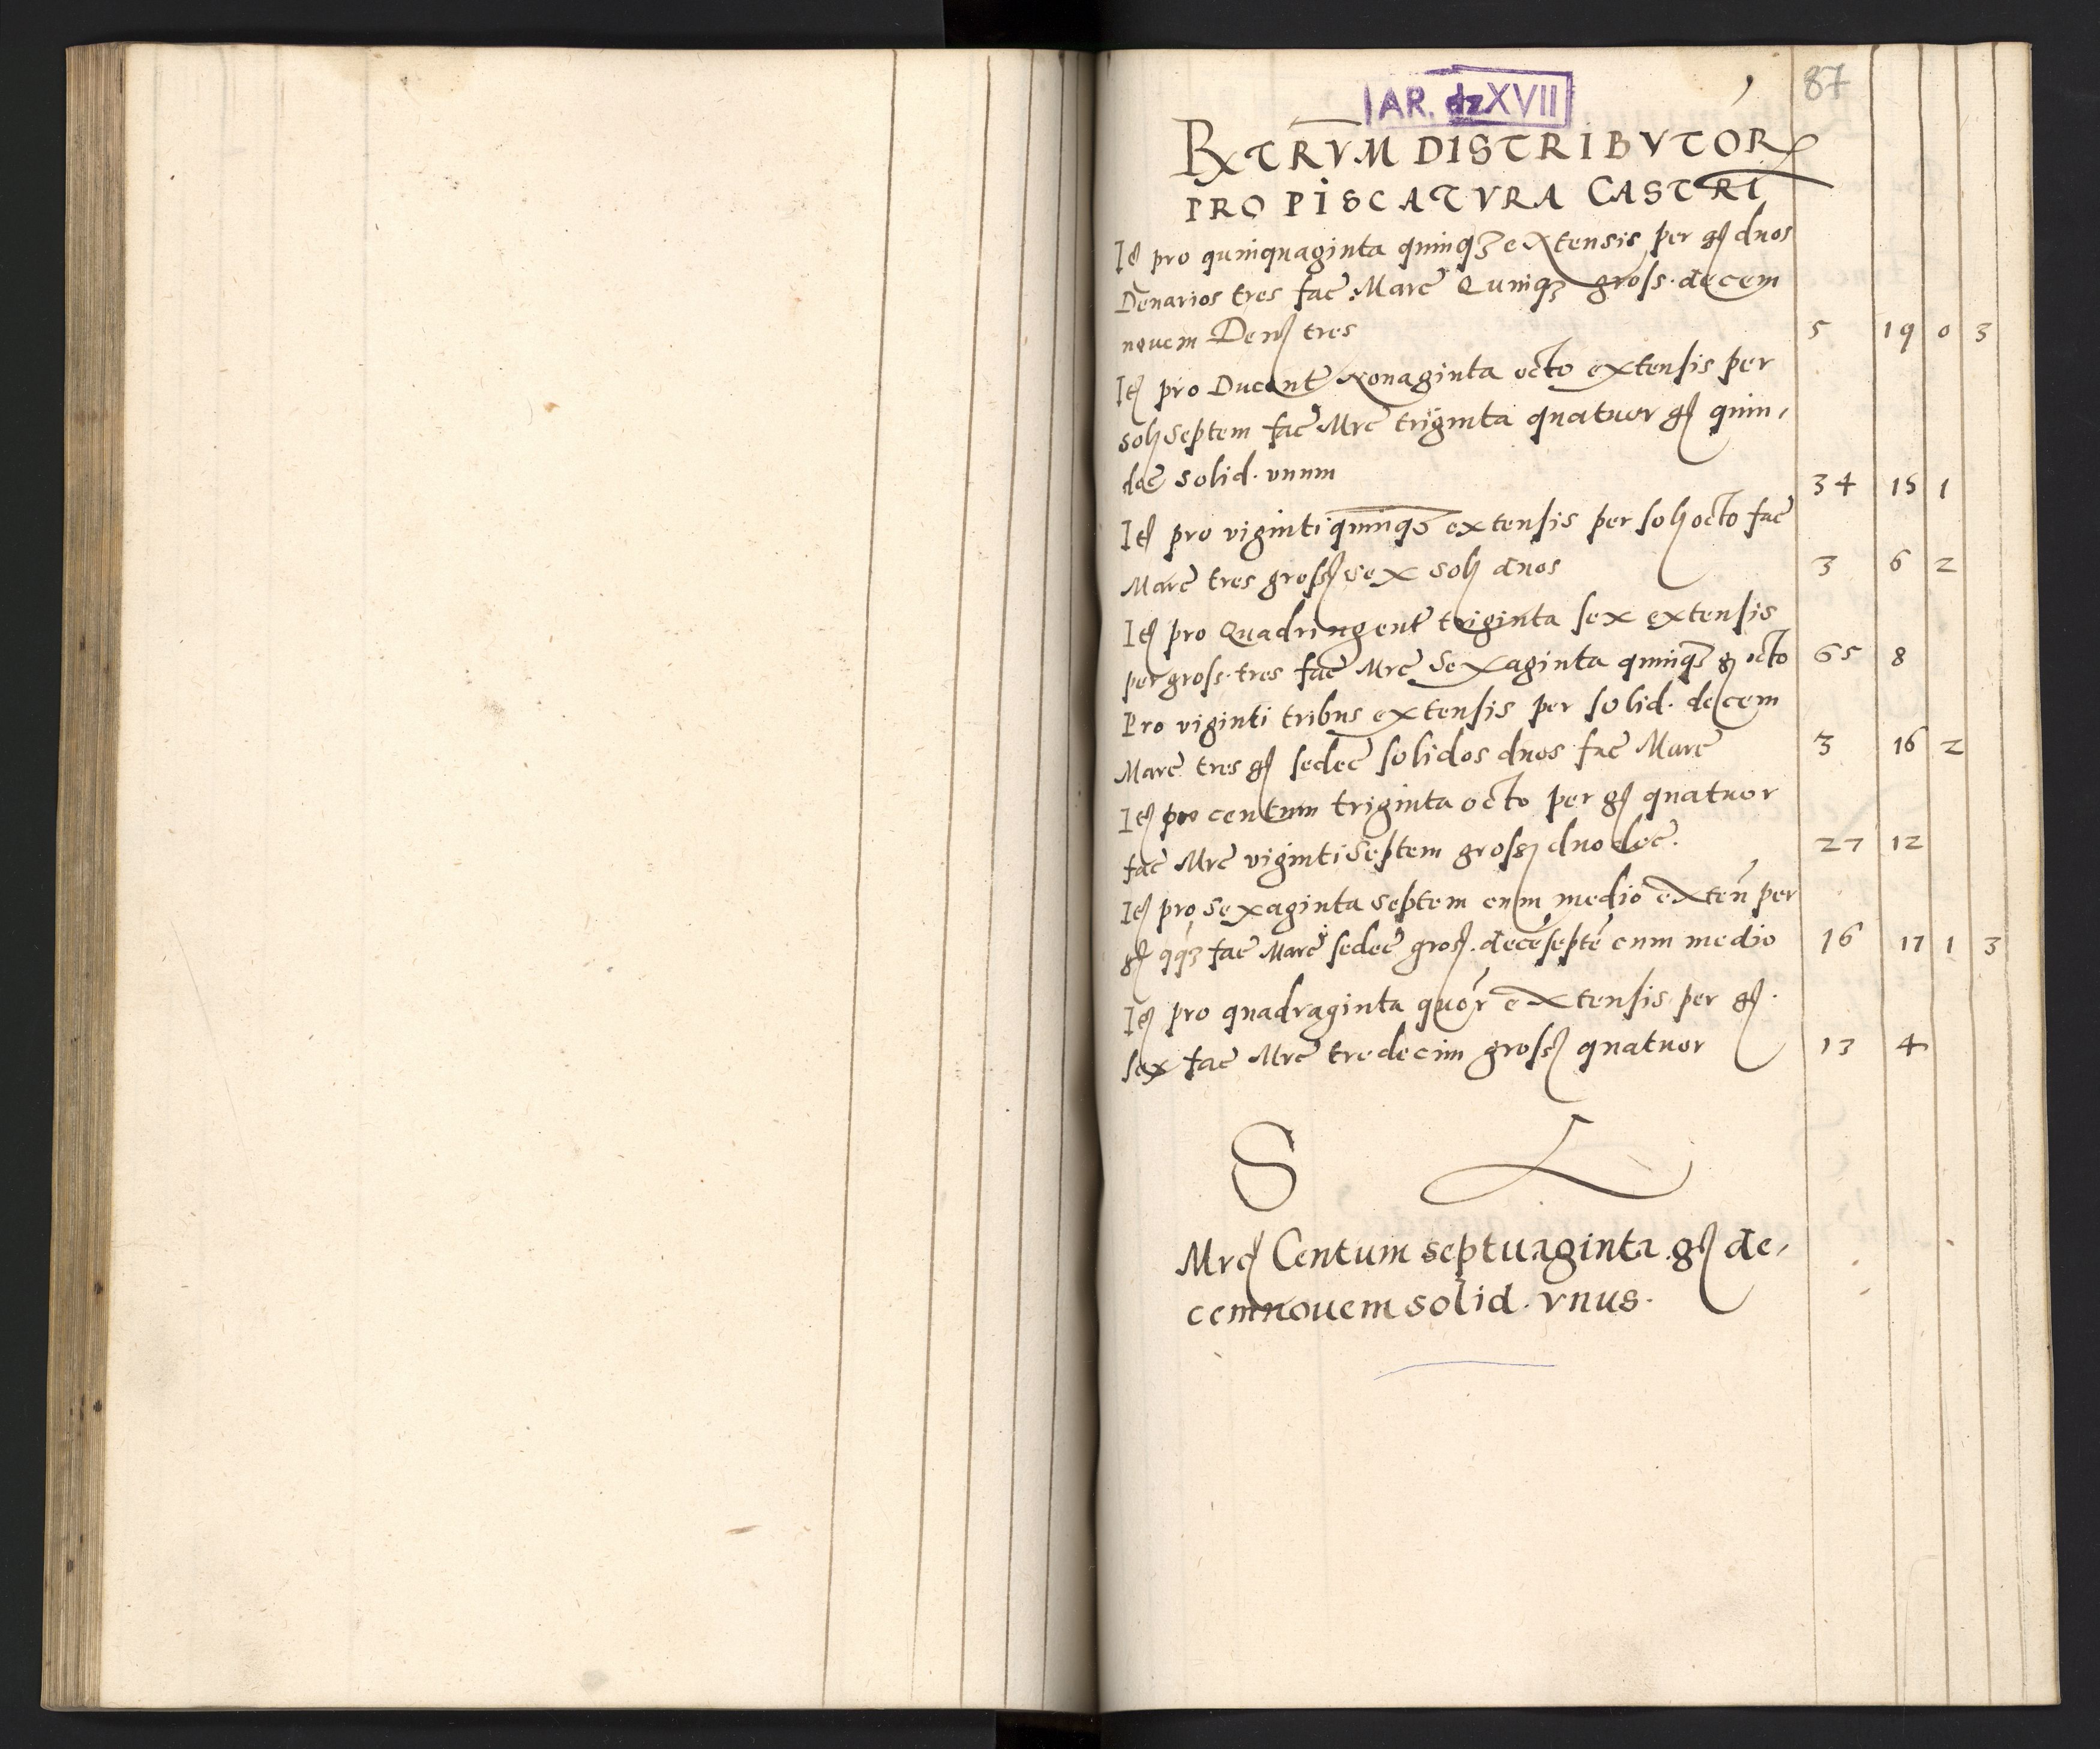 87
AR. dz XVII
RXTRVM DISTRIBVTOR
PRO PISCATVRA CASTRI
Itē pro quinquaginta quinqȝ extensis per gſ duos
Denarios tres fac̄ Marc̄ Quinqȝ gross. decem
novem Denſ tres 5 19 0 3
Itē pro Ducent̄ Nonaginta octo extensis per
solſ septem fac̄ Mrc̄ triginta quatuor gſ quin,
dec̄ solid. vnum 34 15 1
Itē pro viginti quinqȝ extensis per solſ octo fac̄
Marc̄ tres grossſ sex solſ duos 3 6 2
Itē pro Quadringent̄ triginta sex extensis
per gross. tres fac̄ Mrc̄ Sexaginta quinqȝ gſ octo 65 8
Pro viginti tribus extensis per solid. decem
Marc̄ tres gſ sedec̄ solidos duos fac̄ Marc̄ 3 16 2
Itē pro centum triginta octo per gſ quatuor
fac̄ Mrc̄ viginti Septem grossſ duodec̄. 27 12
Itē pro sexaginta septem cum medio extēn per
gſ qqȝ fac̄ Marc̄ sedec̄ grosſ. decēseptē cum medio 16 17 1 3
Itē pro quadraginta quōr extensis per gſ.
sex fac̄ Mrc̄ tredecim grossſ quatuor 13 4
S
Mrcſ Centum septuaginta. gſ de,
cemnouem solid. vnus.